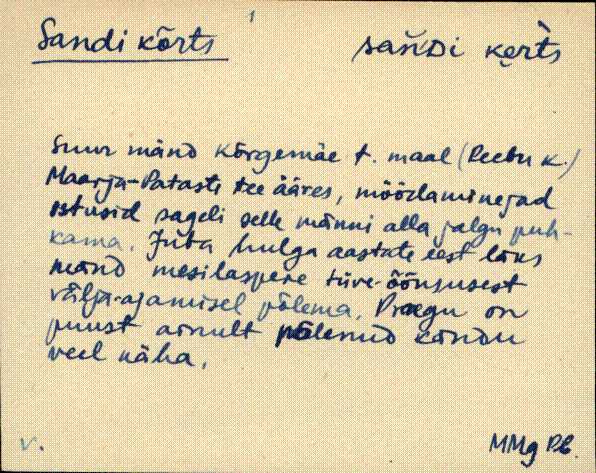 Sandi kõrts
sańďi ke̮rt̀s
Suur mänd Kõrgemäe t. maal (Reebu k.)
Maarja-Patasti tee ääres, möödaminejad
istusid sageli selle männi alla jalgu puh-
kama. Juba hulga aastate eest läks
mänd mesilaspere tüve-õõnsusest
välja-ajamisel põlema. Praegu on
puust ainult põlenud kändu
veel näha.
v.
MMg Pb.